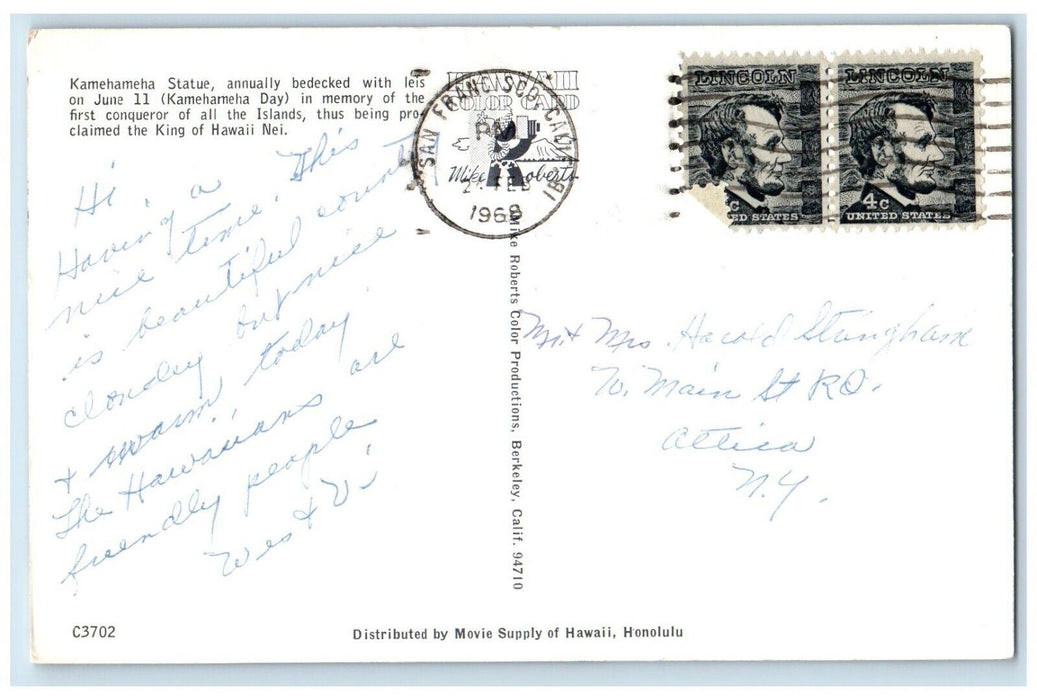 Kamehameha Statue, annually bedecked with leis
on June 11 (Kamehameha Day) in memory of the
first conqueror of all the Islands, thus being pro-
claimed the King of Hawaii Nei.
HAWAII
COLOR CARD
Mike Roberts
SAN FRANCISCO, CALIF
PM
1969
LINCOLN
ED STATES
LINCOLN
4c
UNITED STATES
Hi. a
Having a This
nice time. country
is beautiful nice
cloudey but
& warm today
The Hawaiians are
friendly people
Wes & Vi
Mike Roberts Color Productions, Berkeley, Calif. 94710
Mr & Mrs. Harold Stringham
W. Main St RD.
Attica
N.Y.
C3702
Distributed by Movie Supply of Hawaii, Honolulu